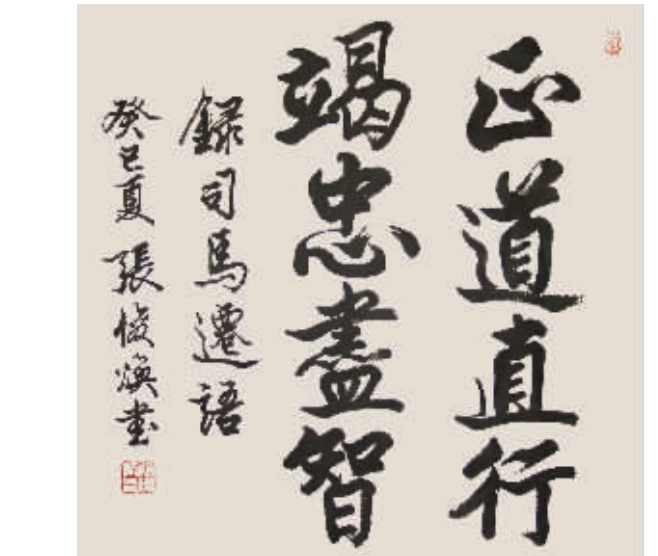 正道直行
竭忠盡智
錄司馬遷語
癸巳夏 張俊煥書